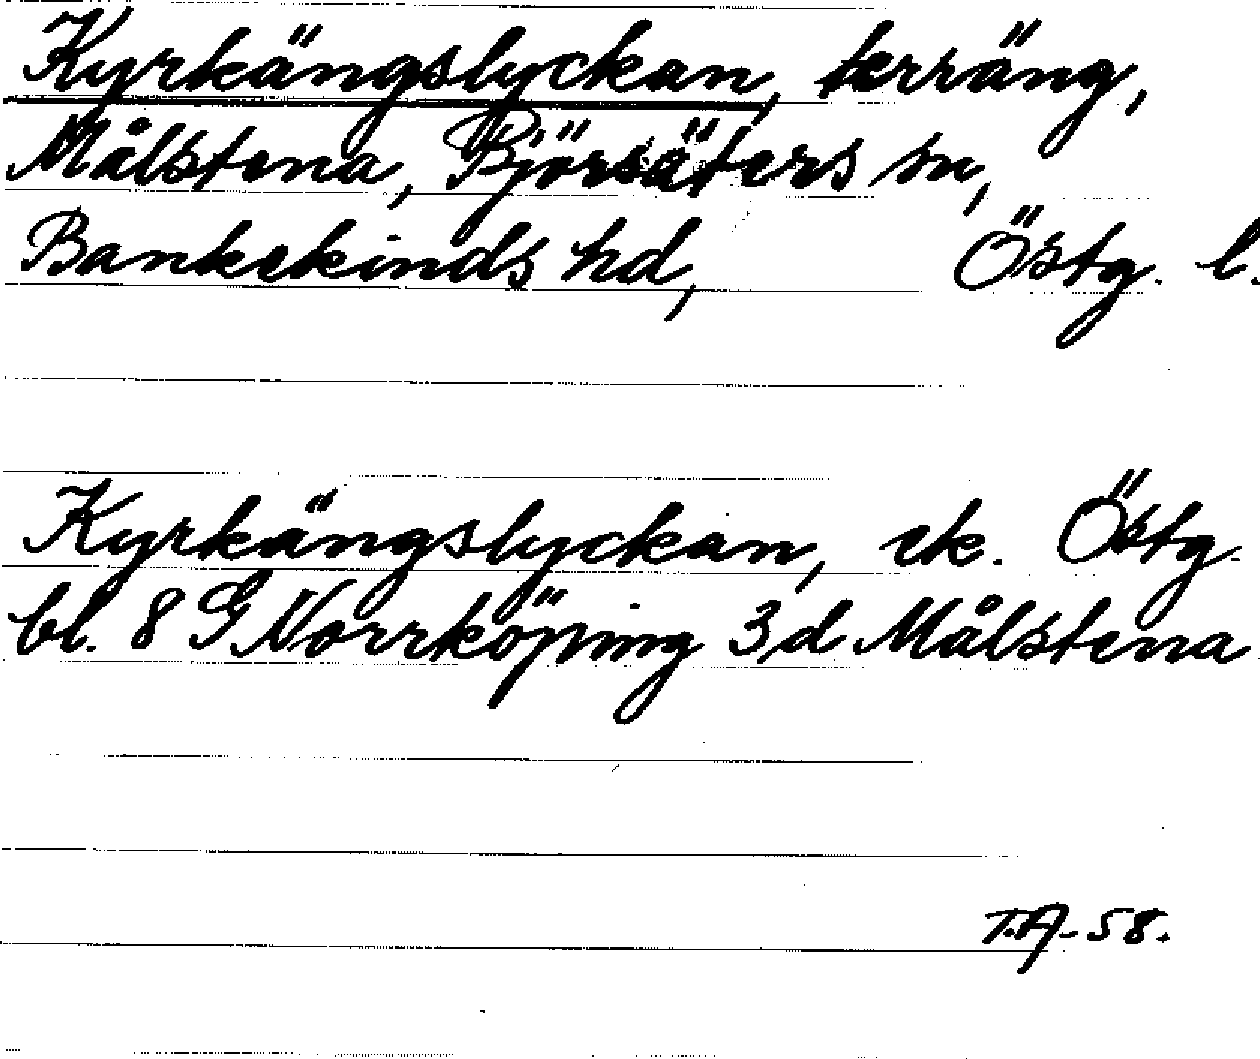 Kyrkängslyckan, terräng,
Målstena, Björsäters sn,
Bankekinds hd, Östg. l.
Kyrkängslyckan, ek. Östg.
bl. 8 G Norrköping 3d Målstena.
T.A-58.